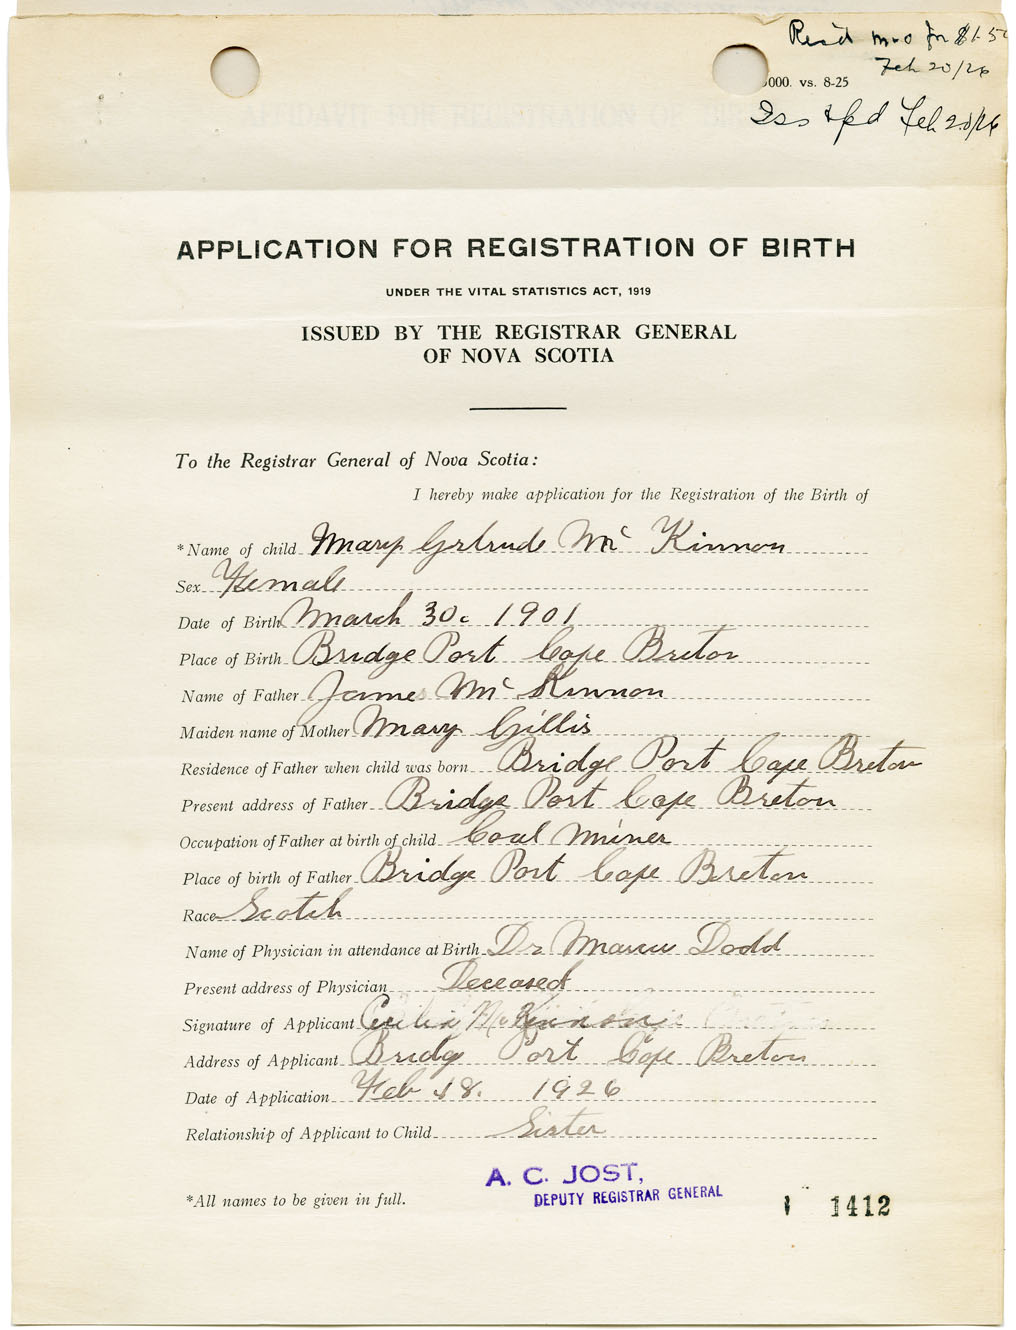 Rec'd m.o for $1.50
Feb 20/26
000. vs. 8-25
Iss & fd Feb 20/26
APPLICATION FOR REGISTRATION OF BIRTH
UNDER THE VITAL STATISTICS ACT, 1919
ISSUED BY THE REGISTRAR GENERAL
OF NOVA SCOTIA
To the Registrar General of Nova Scotia:
I hereby make application for the Registration of the Birth of
*Name of child Mary Gertrude Mc Kinnon
Sex Female
Date of Birth March 30. 1901
Place of Birth Bridge Port Cape Breton
Name of Father James Mc Kinnon
Maiden name of Mother Mary Gillis
Residence of Father when child was born Bridge Port Cape Breton
Present address of Father Bridge Port Cape Breton
Occupation of Father at birth of child Coal Miner
Place of birth of Father Bridge Port Cape Breton
Race Scotch
Name of Physician in attendance at Birth Dr Dodd
Present address of Physician Deceased
Signature of Applicant Cecilia McKinnon
Address of Applicant Bridg Port Cape Breton
Date of Application Feb 18. 1926
Relationship of Applicant to Child Sister
A. C. JOST,
DEPUTY REGISTRAR GENERAL
*All names to be given in full.
1412